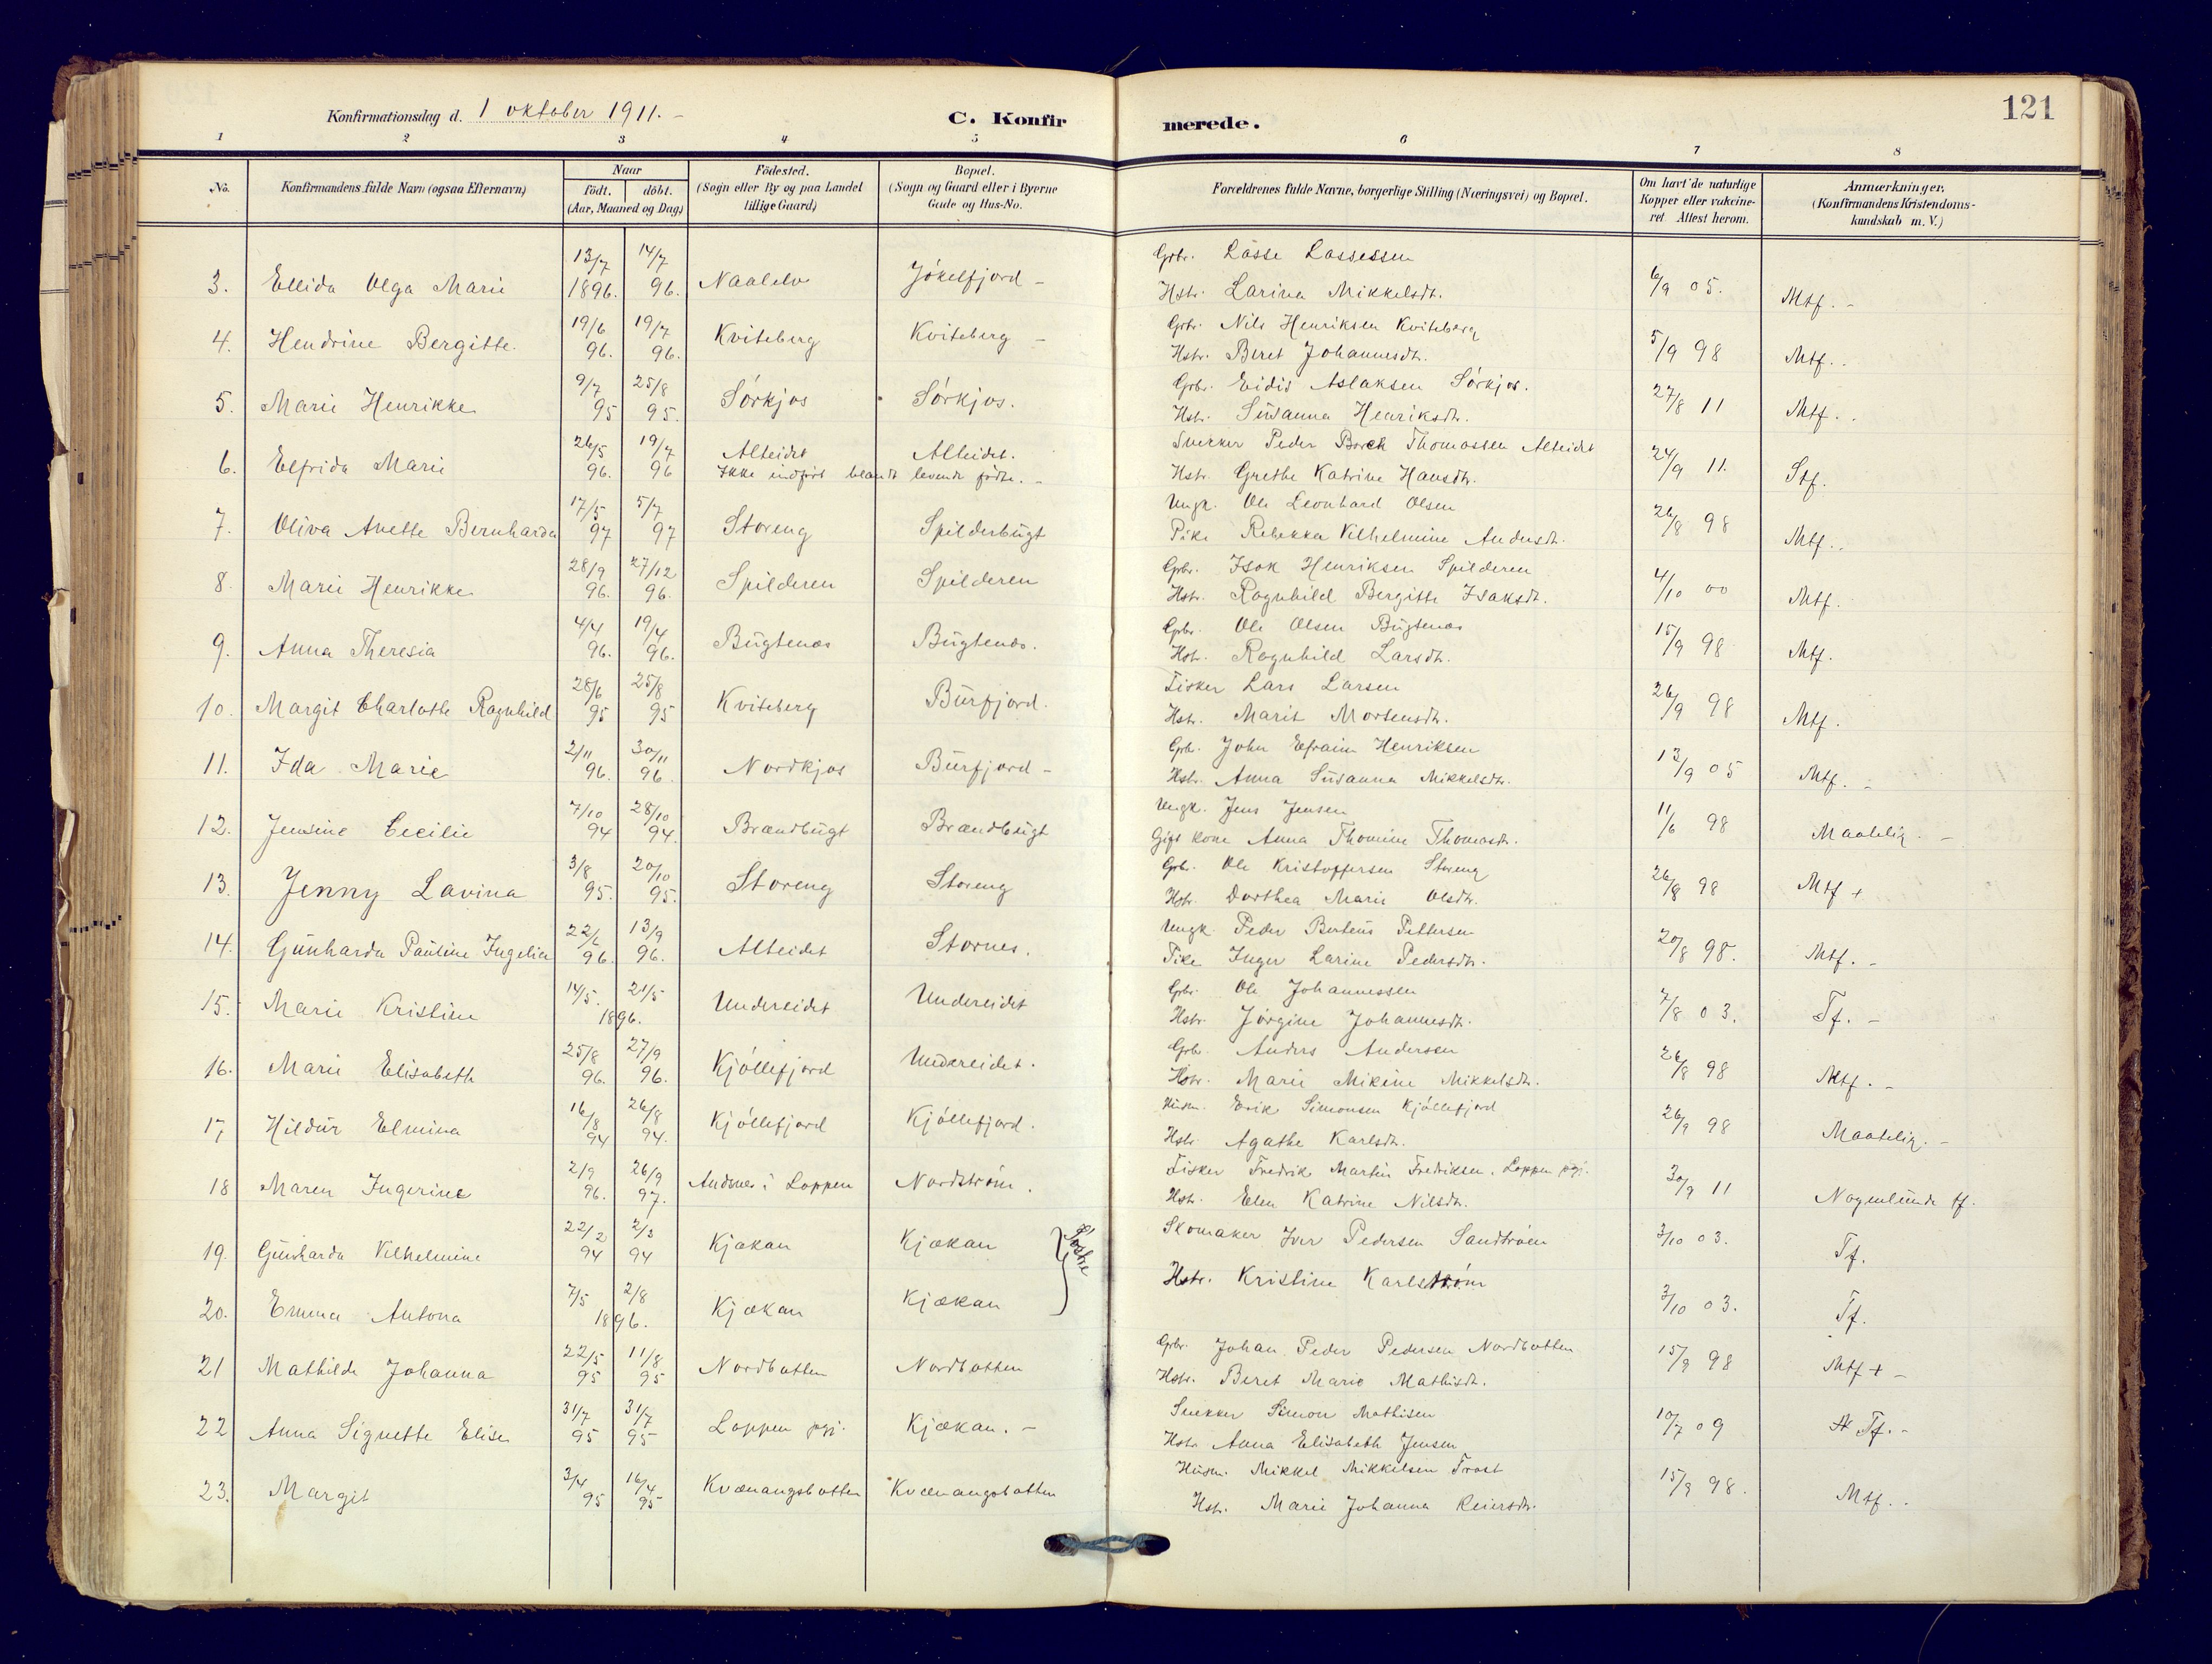 121
Konfirmationsdag d. 1 oktober 1911. C. Konfirmerede.
1 2 3 4 5 6 7 8
No. Konfirmandens fulde Navn (ogsaa Efternavn) Naar födt. döbt. (Aar, Maaned og Dag) Födested. (Sogn eller By og paa Landet tillige Gaard) Bopæl. (Sogn og Gaard eller i Byerne Gade og Hus-No. Forældrenes fulde Navne, borgerlige Stilling (Næringsvei) og Bopæl. Om havt de naturlige Kopper eller vakcineret Attest herom. Anmærkninger. (Konfirmandens Kristendomskundskab m. V.)
3. Ellida Olga Marie 13/7 1896. 14/7 96. Naalelv Jökelfjord - Gbr. Lasse Lassessen
Hstr. Larina Mikkelsdt. 6/9 05. Mtf. -
4. Hendrine Bergitte. 19/6 96. 19/7 96. Kviteberg Kviteberg - Gbr. Nils Henriksen Kviteberg
Hstr. Beret Johannesdt. 5/9 98 Mtf. .
5. Marie Henrikke 9/7 95 25/8 95. Sörkjos Sörkjos. Gbr. Eidis Aslaksen Sörkjos.
Hstr. Susanna Henriksdt. 27/8 11 Mtf. .
6. Elfrida Marie 26/5 96. 19/7 96 Alteidet Alteidet. Snekker Peder Borch Thomassen Alteidet
Ikke indfört blandt levende födte. - Hstr. Grethe Katrine Hansdt. 24/9 11. Stf.
7. Oliva Anette Bernharda 17/5 97 5/7 97 Storeng Spilderbugt Ungk. Ole Leonhard Olsen
Pike Rebekka Vilhelmine Andersdt. 26/8 98 Mtf. .
8. Marie Henrikke 28/9 96. 27/12 96. Spilderen Spilderen Gbr. Isak Henriksen Spilderen
Hstr. Ragnhild Bergitte Isaksdt. 4/10 00 Mtf.
9. Anna Theresia 4/4 96. 19/4 96. Bugtenæs Bugtenæs. Gbr. Ole Olsen Bugtenæs
Hstr. Ragnhild Larsdt. 15/9 98 Mtf.
10. Margit Charlotte Ragnhild 28/6 95 25/8 95 Kviteberg Burfjord. Fisker Lars Larsen
Hstr. Marit Mortensdt. 26/9 98 Mtf.
11. Ida Marie 2/11 96. 30/11 96. Nordkjos Burfjord - Gbr. John Efraim Henriksen
Hstr. Anna Susanna Mikkelsdtr. 13/9 05 Mtf. -
12. Jensine Cecilie 7/10 94 28/10 94. Brændbugt Brændbugt Ungk. Jens Jensen
Gift kone Anna Thomine Thomasdt. 11/6 98 Maatelig. -
13. Jenny Lavina 3/8 95. 20/10 95. Storeng Storeng Gbr. Ole Kristoffersen Storeng
Hstr. Dorthea Marie Olsdt. 26/8 98 Mtf +
14. Gunharda Pauline Ingelia 22/6 96. 13/9 96. Alteidet Stornes. Ungk. Peder Berteus Pettersen
Pike Inger Larine Pedersdt. 20/8 98. Mtf. -
15. Marie Kristine 14/5. 21/5 1896. Undereidet Undereidet Gbr. Ole Johannessen
Hstr. Jörgine Johannesdt. 7/8 03. Tf. -
16. Marie Elisabeth 25/8 96. 27/9 96. Kjöllefjord Undereidet. Gbr. Anders Andersen
Hstr. Marie Mikine Mikkelsdt. 26/8 98 Mtf. -
17 Hildur Elmina 16/8 94 26/8 94. Kjöllefjord Kjöllefjord. Husm. Erik Simonsen Kjöllefjord
Hstr Agathe Karlsdt. 26/9 98 Maatelig. -
18 Maren Ingerine 2/9 96. 26/9 97. Andsnes i Loppen Nordström. Fisker Fredrik Martin Fredriksen. Loppen pgj.
Hstr. Elen Katrine Nilsdt. 30/9 11 Nogenlunde tf.
19. Gunharda Vilhelmine 22/2 94 2/3 94 Kjækan Kjækan Söstre Skomaker Iver Pedersen Sandtröen 3/10 03. Tf.
Hstr. Kristine Karlström
20. Emma Antona 7/5 2/8 1896. Kjækan Kjækan 3/10 03. Tf.
21 Mathilde Johanna 22/5 95 11/8 95 Nordbotten Nordbotten Gbr. Johan Peder Pedersen Nordbotten
Hstr. Beret Marie Mathisdt. 15/9 98 Mtf + -
22 Anna Signette Elise 31/7 95 31/7 95 Loppen pgj. Kjækan. - Snekker Simon Mathisen
Hstr Anna Elisabeth Jensen 10/7 09 Tf. -
23. Margit 3/4 95 16/4 95 Kvænangsbotten Kvænangsbotten Husm. Mikkel Mikkelsen Trast
Hstr. Marie Johanna Reiersdt. 15/9 98. Mtf. .